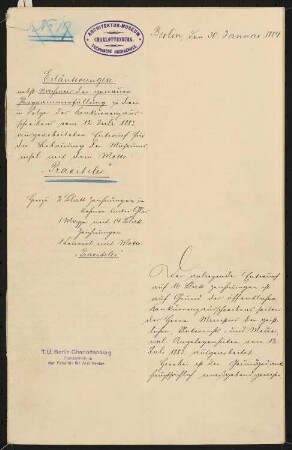 ARCHITEKTUR-MUSEUM
CHARLOTTENBURG
TECHNISCHE HOCHSCHULE
Berlin, den 30. Januar 1884
Erläuterungen
nebst der genauen
Programmerfüllung zu dem
in Folge der Konkurrenzaus-
schreiben vom 12 Juli 1883
ausgearbeiteten Entwurf für
die Bebauung der Museums-
insel mit dem Motto
"Praxiteles"
Hierzu 2 Blatt Zeichnungen in
Rahmen unter Glas
1 Mappe mit 14 Blatt
Zeichnungen
1 Couvert mit Motto
"Praxiteles"
Der vorliegende Entwurf
auf 16 Blatt Zeichnungen ist
auf Grund des öffentlichen
Konkurrenzausschreibens seitens
des Herrn Ministers der geist-
lichen Unterrichts- und Medici-
nal Angelegenheiten vom 12
Juli 1883 ausgearbeitet.
T.U. Berlin-Charlottenburg
Plansammlung
der Fakultät für Architektur